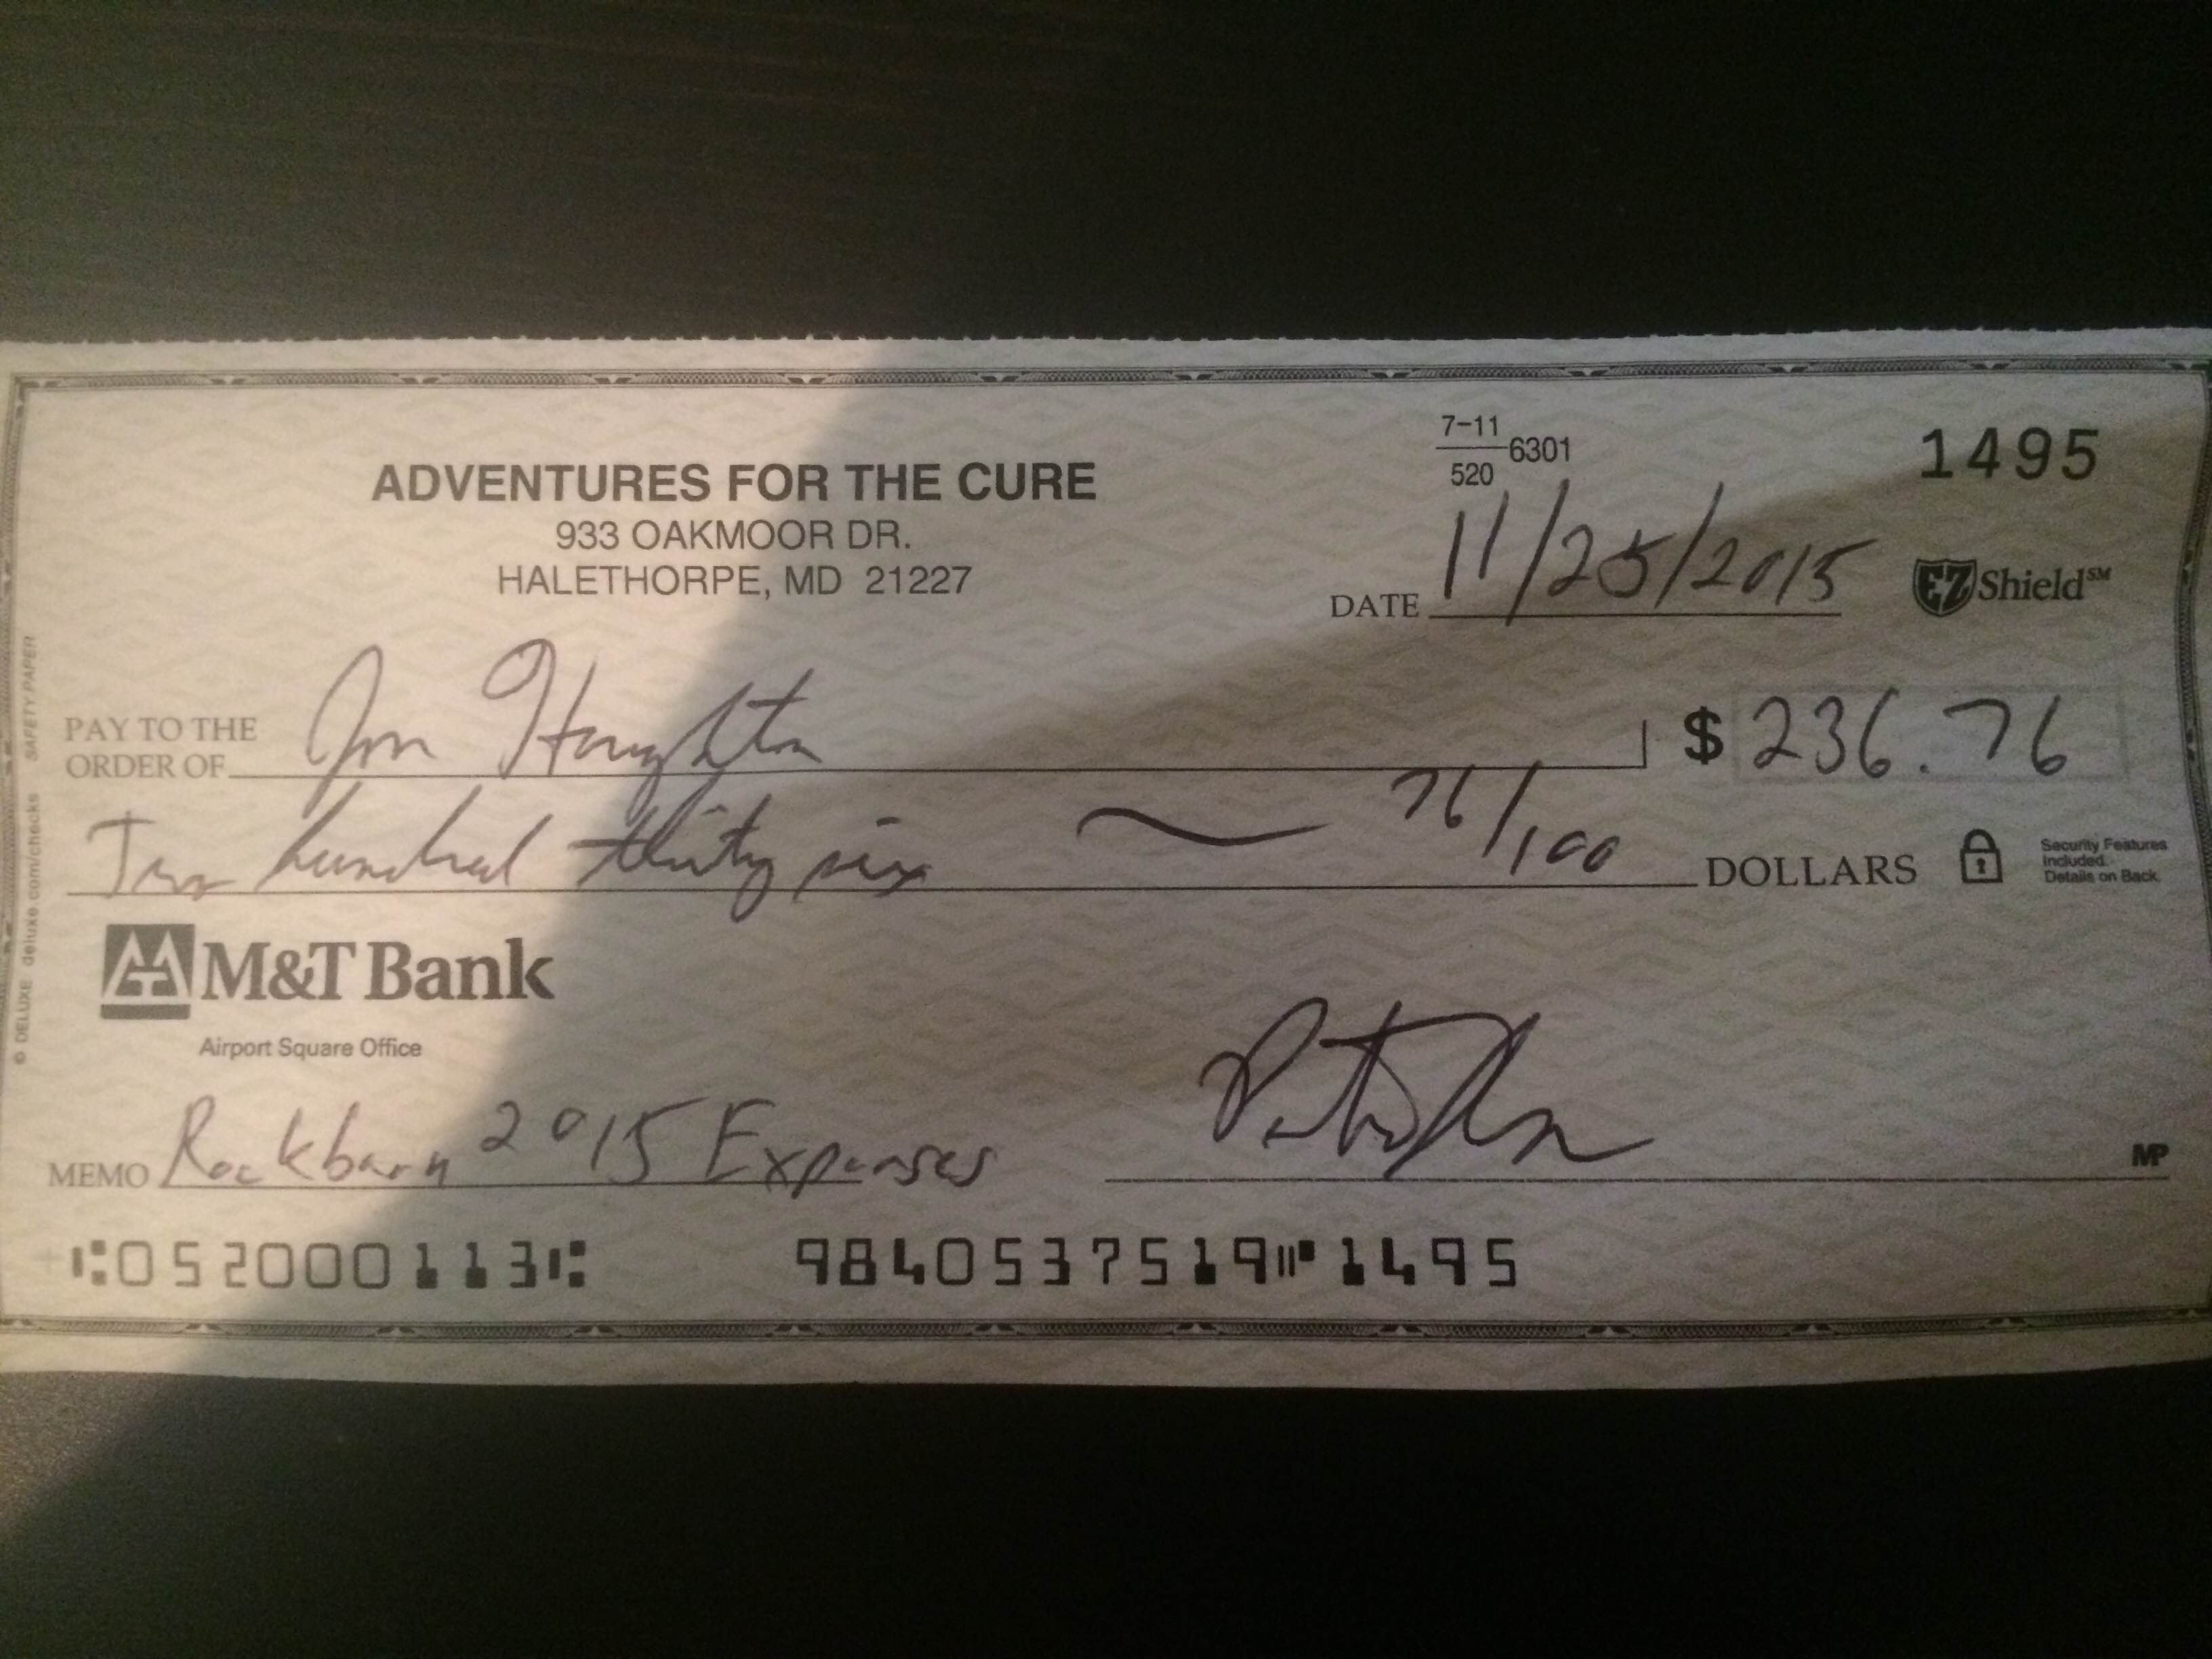 ADVENTURES FOR THE CURE
933 OAKMOOR DR.
HALETHORPE, MD 21227
1495
7-11 6301
520
DATE 11/25/2015
EZShield℠
PAY TO THE
ORDER OF Jon
$ 236.76
Two hundred thirty six 76/100 DOLLARS
Security Features
Included.
Details on Back
M&T Bank
Airport Square Office
MEMO Rockburn 2015 Expenses
MP
⑆052000113⑆ 9840537519⑈1495
© DELUXE deluxe.com/checks SAFETY PAPER